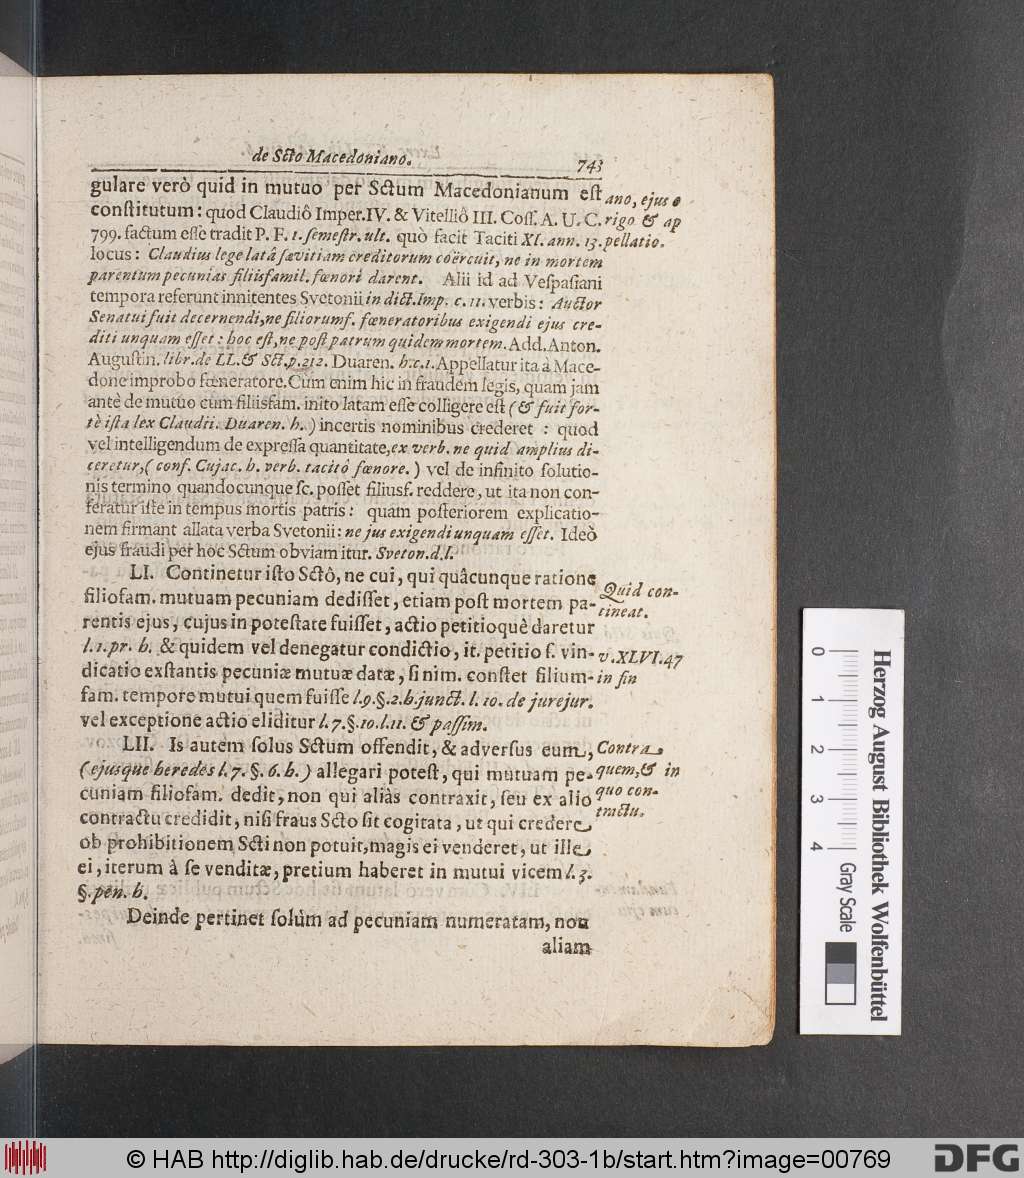 de Scto Macedoniano.
743
gulare verò quid in mutuo per Sctum Macedonianum est
constitutum: quod Claudiô Imper. IV. & Vitelliô III. Coss. A. U. C.
799. factum esse tradit P. F. 1. semestr. ult. quò facit Taciti XI. ann. 13.
locus: Claudius lege latâ sævitiam creditorum coërcuit, ne in mortem
parentum pecunias filiisfamil. fœnori darent. Alii id ad Vespasiani
tempora referunt innitentes Svetonii in dict. Imp. c. 11. verbis: Auctor
Senatui fuit decernendi, ne filiorumf. fœneratoribus exigendi ejus cre-
diti unquam esset: hoc est, ne post patrum quidem mortem. Add. Anton.
Augustin. libr. de LL. & Sct. p. 212. Duaren. h. c. 1. Appellatur ita à Mace-
done improbo fœneratore. Cum enim hic in fraudem legis, quam jam
antè de mutuo cum filiisfam. inito latam esse colligere est (& fuit for-
tè ista lex Claudii. Duaren. h.) incertis nominibus crederet: quod
vel intelligendum de expressa quantitate, ex verb. ne quid amplius di-
ceretur, (conf. Cujac. h. verb. tacitô fœnore.) vel de infinito solutio-
nis termino quandocunque sc. posset filiusf. reddere, ut ita non con-
feratur iste in tempus mortis patris: quam posteriorem explicatio-
nem firmant allata verba Svetonii: ne jus exigendi unquam esset. Ideò
ejus fraudi per hoc Sctum obviam itur. Sveton. d. l.
LI. Continetur isto Sctô, ne cui, qui quâcunque ratione
filiofam. mutuam pecuniam dedisset, etiam post mortem pa-
rentis ejus, cujus in potestate fuisset, actio petitioquè daretur
l. 1. pr. h. & quidem vel denegatur condictio, it. petitio s. vin-
dicatio exstantis pecuniæ mutuæ datæ, si nim. constet filium-
fam. tempore mutui quem fuisse l. 9. §. 2. h. junct. l. 10. de jurejur.
vel exceptione actio eliditur l. 7. §. 10. l. 11. & passim.
LII. Is autem solus Sctum offendit, & adversus eum,
(ejusque heredes l. 7. §. 6. h.) allegari potest, qui mutuam pe-
cuniam filiofam. dedit, non qui aliàs contraxit, seu ex alio
contractu credidit, nisi fraus Scto sit cogitata, ut qui credere
ob prohibitionem Scti non potuit, magis ei venderet, ut ille
ei, iterum à se venditæ, pretium haberet in mutui vicem l. 3.
§. pen. h.
Deinde pertinet solùm ad pecuniam numeratam, non
aliam
ano, ejus o
rigo & ap
pellatio.
Quid con-
tineat.
v. XLVI. 47
in fin
Contra
quem, & in
quo con-
tractu.
0 1 2 3 4
Gray Scale
Herzog August Bibliothek Wolfenbüttel
© HAB http://diglib.hab.de/drucke/rd-303-1b/start.htm?image=00769
DFG